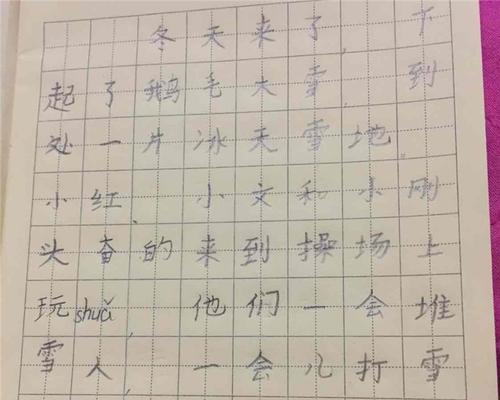 冬天来了，下
起了鹅毛大雪，到
处一片冰天雪地。
小红、小文和小刚
头奋的来到操场上
玩shuǎ，他们一会堆
雪人，一会儿打雪